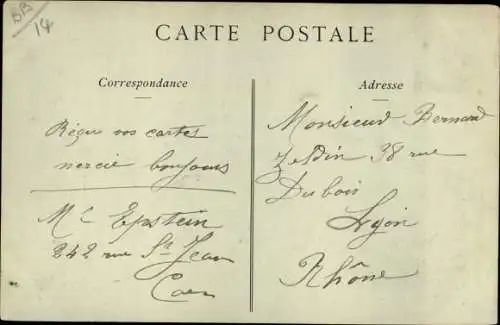 BB
14
CARTE POSTALE
Correspondance
Reçu vos cartes
merçie bonjours
Mc Epstein
242 rue St Jean
Caen
Adresse
Monsieur Bernard
Zeldin 38 rue
Dubois
Lyon
Rhône